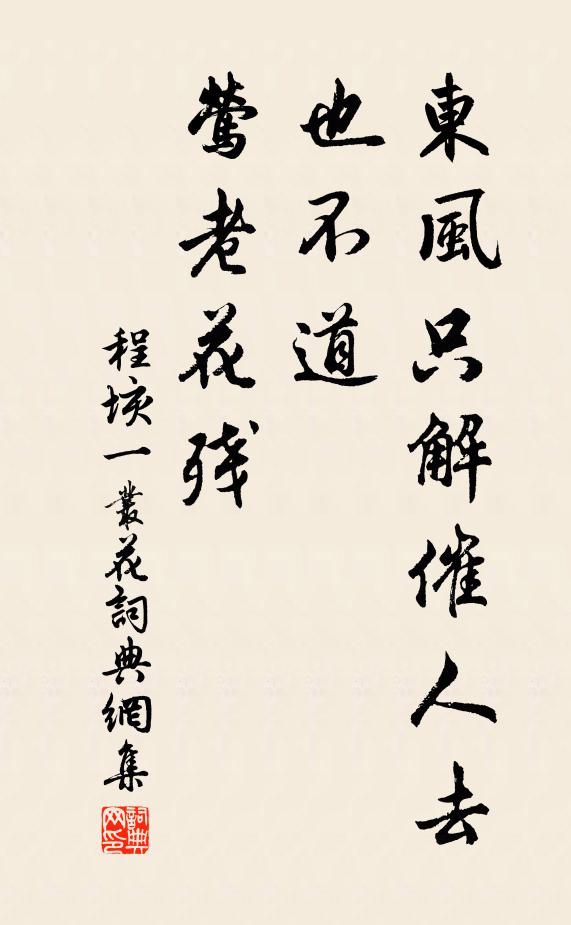 東風只解催人去
也不道
鶯老花残
程垓一叢花詞典網集
詞典
网印